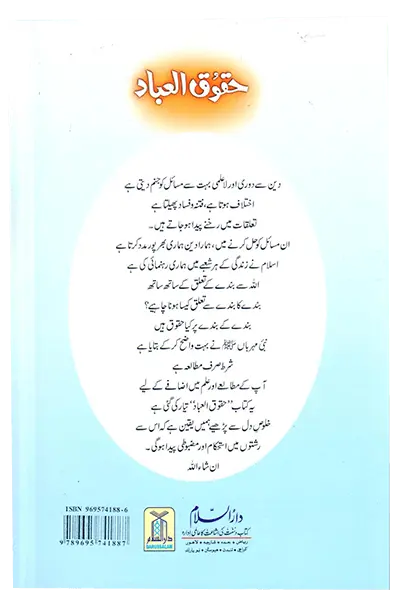 حقوق العباد
دین سے دوری اور لاعلمی بہت سے مسائل کو جنم دیتی ہے
اختلاف ہوتا ہے، فتنہ و فساد پھیلتا ہے
تعلقات میں رخنے پیدا ہو جاتے ہیں۔
ان مسائل کو حل کرنے میں، ہمارا دین ہماری بھرپور مدد کرتا ہے
اسلام نے زندگی کے ہر شعبے میں ہماری رہنمائی کی ہے
اللہ سے بندے کے تعلق کے ساتھ ساتھ
بندے کا بندے سے تعلق کیسا ہونا چاہیے؟
بندے کے بندے پر کیا حقوق ہیں
نبی مہرباں ﷺ نے بہت واضح کر کے بتایا ہے
شرط صرف مطالعہ ہے
آپ کے مطالعے اور علم میں اضافے کے لیے
یہ کتاب "حقوق العباد" تیار کی گئی ہے
خلوص دل سے پڑھیے ہمیں یقین ہے کہ اس سے
رشتوں میں استحکام اور مضبوطی پیدا ہوگی۔
ان شاء اللہ
ISBN 969574188-6
9 789695 741887
دارالسلام
DARUSSALAM
دارالسلام
کتاب و سنت کی اشاعت کا عالمی ادارہ
ریاض • جدہ • شارجہ • لاہور
کراچی • لندن • ہیوسٹن • نیو یارک